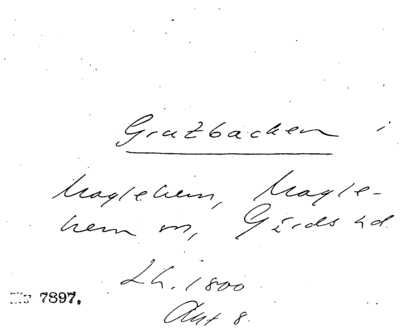 Grutbacken
Maglehem, Magle-
hem sn, Gärds hd.
Lh. 1800
Akt 8.
7897.